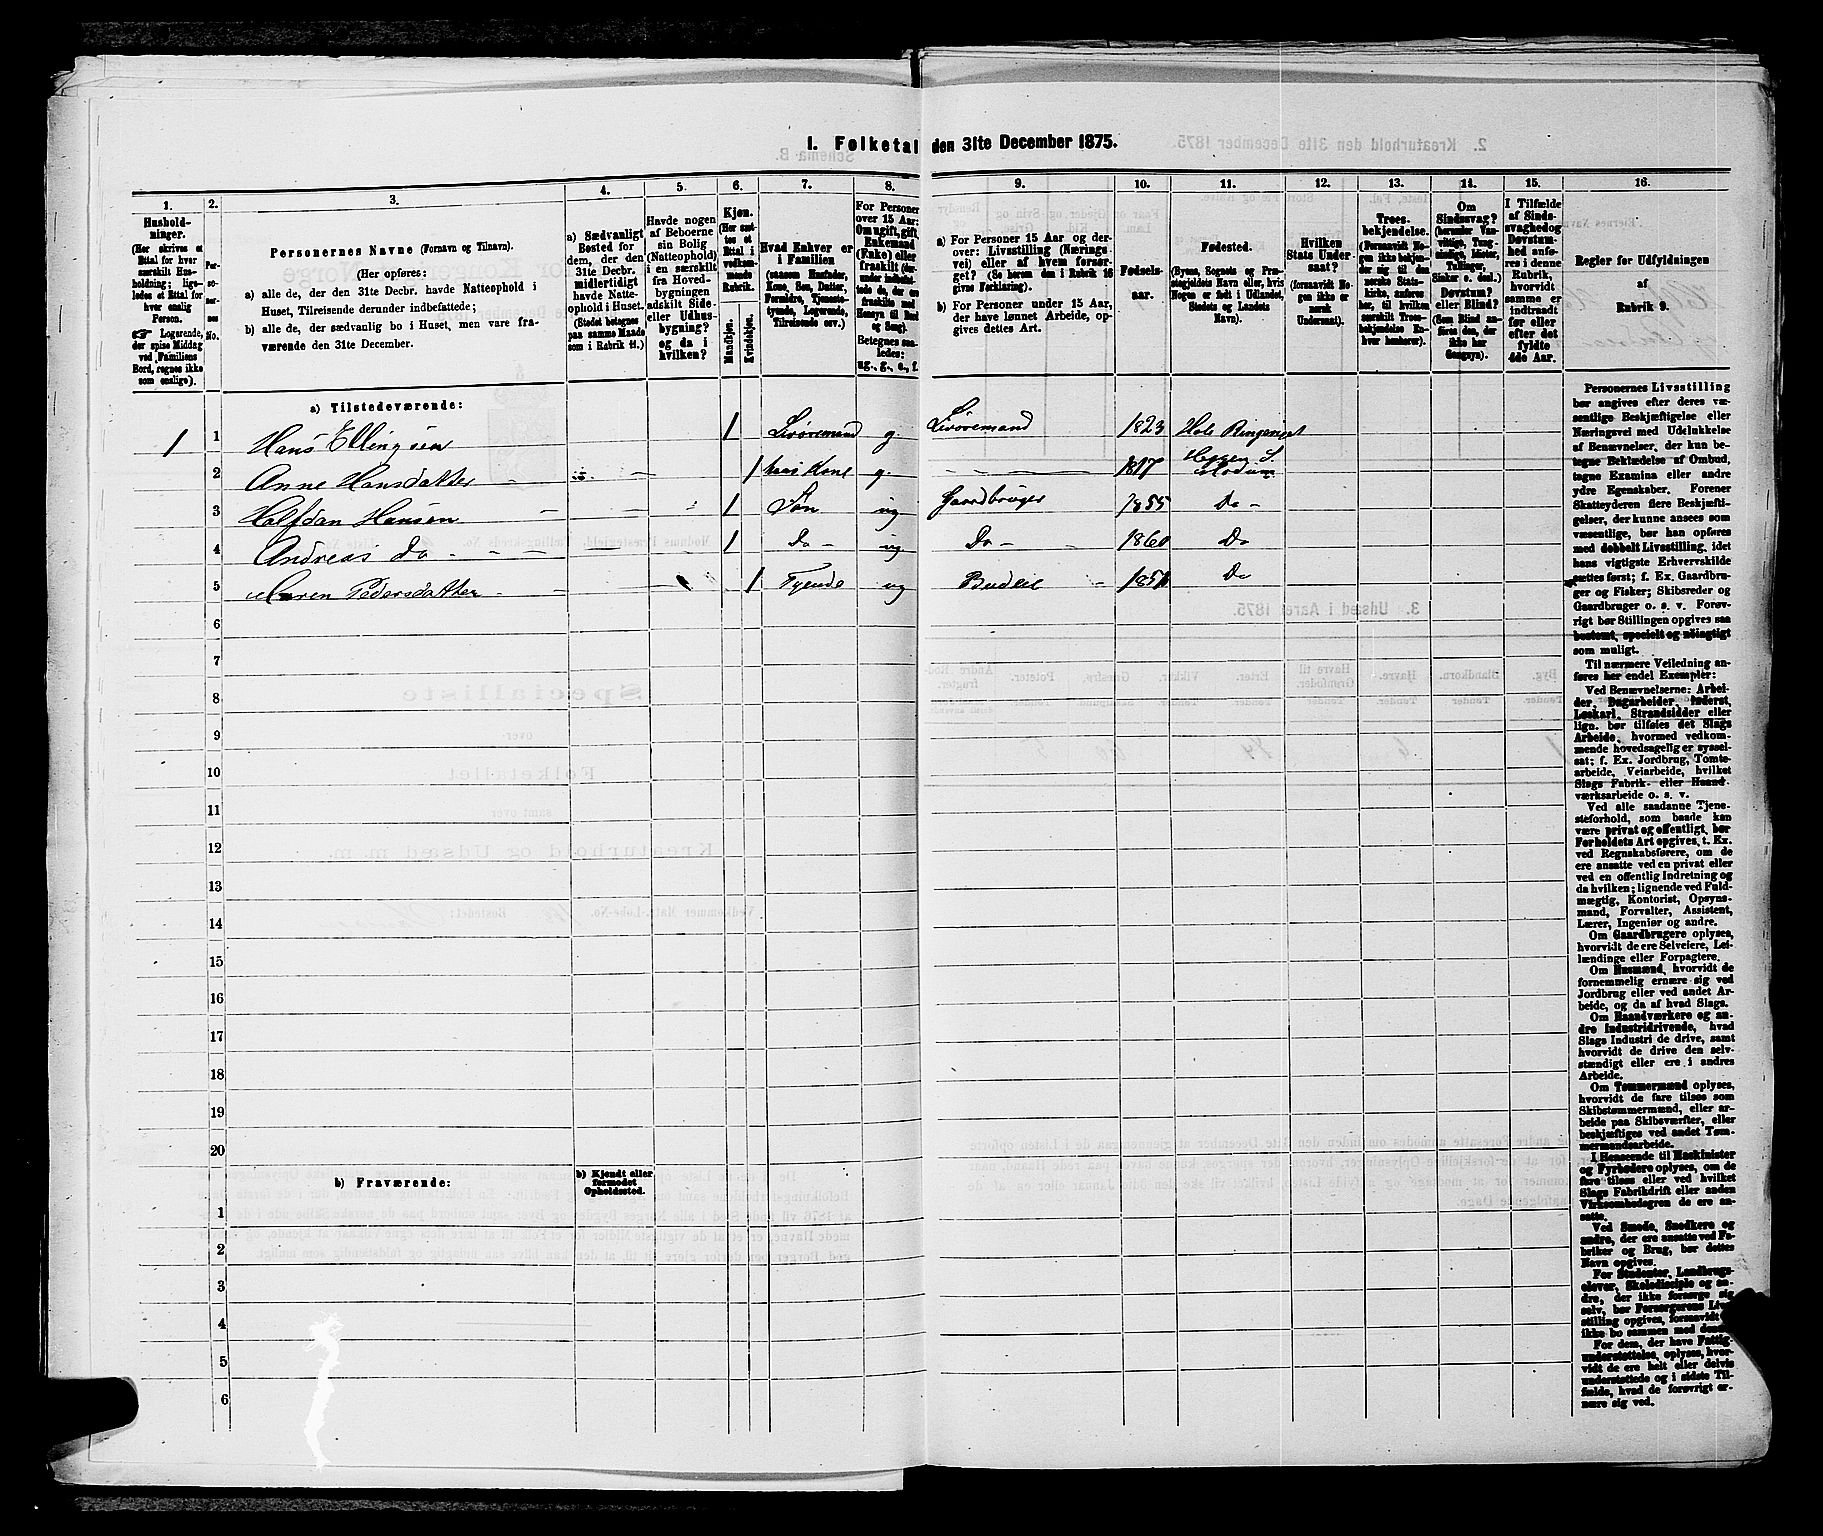 I. Folketal den 31te December 1875.
1. 2. 3. 4. 5. 6. 7. 8. 9. 10. 11. 12. 13. 14. 15. 16.
Hushold-
ninger.
(Her skrives et
Ettal for hver
særskilt Hus-
holdning; lige-
ledes et Ettal for
hver enslig
Person.
☞ Logerende,
der spise Middag
ved Familiens
Bord, regnes ikke
som enslige).
Per-
so-
ner-
nes
No.
Personernes Navne (Fornavn og Tilnavn).
(Her opføres:
a) alle de, der den 31te Decbr. havde Natteophold i
Huset, Tilreisende derunder indbefattede;
b) alle de, der sædvanlig bo i Huset, men vare fra-
værende den 31te December.
a) Sædvanligt
Bosted for
dem, der den
31te Decbr.
midlertidigt
havde Natte-
ophold i Huset.
(Stedet betegnes
paa samme Maade
som i Rubrik 11.)
Havde nogen
af Beboerne
sin Bolig
(Natteophold)
i en særskilt
fra Hoved-
bygningen
adskilt Side-
eller Udhus-
bygning?
og da i
hvilken?
Kjøn.
(Her sæt-
tes et
Ettal i
vedkom-
mende
Rubrik.
Mandkjøn.
Kvindekjøn.
Hvad Enhver er
i Familien
(saasom Husfader,
Kone, Søn, Datter,
Forældre, Tjeneste-
tyende, Logerende,
Tilreisende osv.)
For Personer
over 15 Aar:
Om ugift, gift,
Enkemand
(Enke) eller
fraskilt
Betegnes saa-
ledes:
ug., g., e., f.
a) For Personer 15 Aar og der-
over: Livsstilling (Nærings-
vei) eller af hvem forsør-
get? (Se herom den i Rubrik 16
givne Forklaring).
b) For Personer under 15 Aar,
der have lønnet Arbeide, op-
gives dettes Art.
Fødsels-
aar.
Fødested.
(Byens, Sognets og Præ-
stegjeldets Navn eller, hvis
Nogen er født i Udlandet,
Stedets og Landets
Navn).
Hvilken
Stats Under-
saat?
(foransavidt No-
gen ikke er
norsk
Undersaat).
Troes-
bekjendelse.
(Foransavidt No-
gen ikke bekjen-
der sig til den
norske Stats-
kirke, anføres
her, til hvilken
særskilt Troes-
bekjendelse En-
hver henhører).
Om
Sindssvag?
(herunder Van-
vittige, Tung-
sindige, Idioter,
Tullinger,
Sinker o. desl.)
Døvstum?
eller Blind?
(Som Blind an-
føres den, der
ikke har
Gangsyn).
I Tilfælde
af Sinds-
svaghed og
Døvstum-
hed anfø-
res i denne
Rubrik,
hvorvidt
samme er
indtraadt
før eller
efter det
fyldte
4de Aar.
Regler for Udfyldningen
af
Rubrik 9.
a) Tilstedeværende:
1 1 Hans Ellingsen 1 g. 1823 Hole Ringeriget
2 Anne Hansdatter 1 hans Kone g. 1817 Heggen S. Modum
3 Halfdan Hansen 1 Søn ug Gaardbruger 1855 Do
4 Andreas Do 1 Do ug Do 1860 Do
5 Maren Pedersdatter 1 Tyende ug Budeie Do
6
7
8
9
10
11
12
13
14
15
16
17
18
19
20
b) Fraværende:
b) Kjendt eller
formodet
Opholdssted.
1
2
3
4
5
6
Personernes Livsstilling
bør angives efter deres væ-
sentlige Beskjæftigelse eller
Næringsvei med Udelukkelse
af Benævnelser, der kun be-
tegne Beklædelse af Ombud,
tagne Examina eller andre
ydre Egenskaber. Forener
Skatteyderen flere Beskjæfti-
gelser, der kunne ansees som
væsentlige, bør han opføres
med dobbelt Livsstilling, idet
hans vigtigste Erhvervskilde
sættes først; f. Ex. Gaardbru-
ger og Fisker; Skibsreder og
Gaardbruger o. s. v. Forøv-
rigt bør Stillingen opgives saa
bestemt, specielt og nøiagtigt
som muligt.
Til nærmere Veiledning an-
føres her endel Exempler:
Ved Benævnelserne: Arbei-
der, Dagarbeider, Inderst,
Løskarl, Strandsidder eller
lign. bør tilføies det Slags
Arbeide, hvormed vedkom-
mende hovedsagelig er syssel-
sat; f. Ex. Jordbrug, Tomte-
arbeide, Veiarbeide, hvilket
Slags Fabrik- eller Haand-
værksarbeide o. s. v.
Ved alle saadanne Tjene-
steforhold, som baade kan
være privat og offentligt, bør
Forholdets Art opgives, t. Ex.
ved Regnskabsførere, om de
ere ansatte ved en privat eller
ved en offentlig Indretning og
da hvilken; lignende ved Fuld-
mægtig, Kontorist, Opsyns-
mand, Forvalter, Assistent,
Lærer, Ingeniør og andre.
Om Gaardbrugere oplyses,
hvorvidt de ere Selveiere, Lei-
lændinge eller Forpagtere.
Om Husmænd, hvorvidt de
fornemmelig ernære sig ved
Jordbrug eller ved andet Ar-
beide, og da af hvad Slags.
Om Haandværkere og an-
dre Industridrivende, hvad
Slags Industri de drive, samt
hvorvidt de drive den selv-
stændigt eller ere i andres
Arbeide.
Om Tømmermænd oplyses,
hvorvidt de fare tilsøs som
Skibstømmermænd, eller ar-
beide paa Skibsværfter, eller
beskjæftiges ved andet Tøm-
mermandsarbeide.
I Henseende til Maskinister
og Fyrbødere oplyses, om de
fare tilsøs eller ved hvilket
Slags Fabrikdrift eller anden
Virksomhedsgren de ere an-
satte.
Ved Smede, Snedkere og
andre, der ere ansatte ved Fa-
briker og Brug, bør dettes
Navn opgives.
For Studenter, Landbrugs-
elever, Skoledisciple og an-
dre, der ikke forsørge sig
selv, bør Forsørgerens Liv-
stilling opgives, forsaavidt
ikke bo sammen med denne.
For dem, der have Fattig-
understøttelse, oplyses, hvor-
vidt de ere helt eller delvis
understøttede og i sidste Til-
fælde, hvad de forøvrigt er-
nære sig ved.